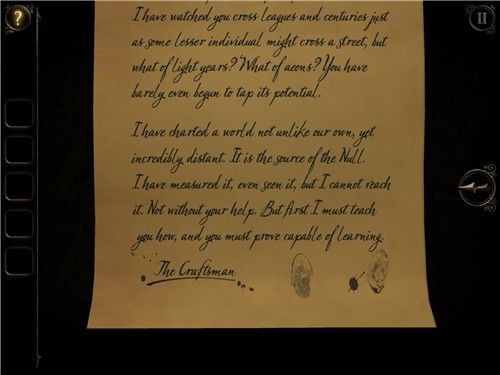 I have watched you cross leagues and centuries just
as some lesser individual might cross a street, but
what of light years? What of aeons? You have
barely even begun to tap its potential.
I have charted a world not unlike our own, yet
incredibly distant. It is the source of the Null.
I have measured it, even seen it, but I cannot reach
it. Not without your help. But first I must teach
you how, and you must prove capable of learning.
The Craftsman
?
II